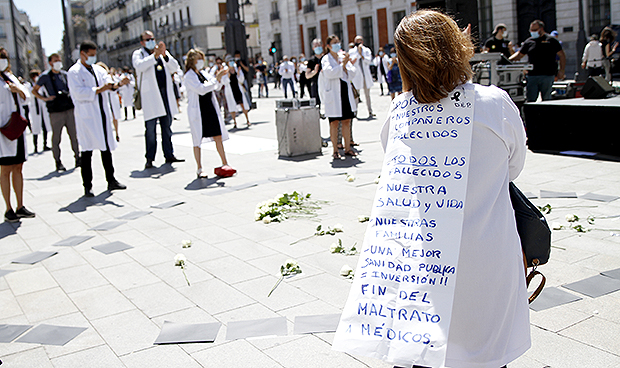 D.E.P.
NUESTROS
COMPAÑEROS
FALLECIDOS
TODOS LOS
FALLECIDOS
NUESTRA
SALUD Y VIDA
NUESTRAS
FAMILIAS
- UNA MEJOR
SANIDAD PUBLICA
= INVERSIÓN!!
FIN DEL
MALTRATO
A MÉDICOS.